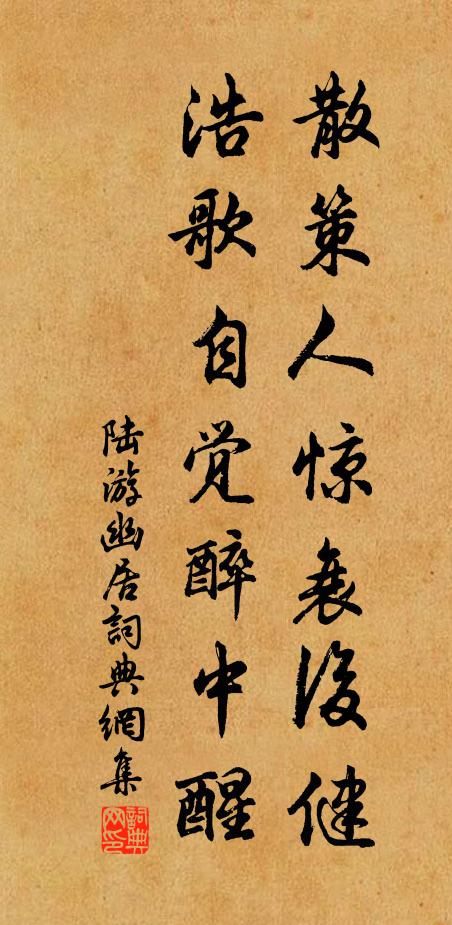 散策人惊衰後健
浩歌自觉醉中醒
陆游幽居詞典網集
詞典网印